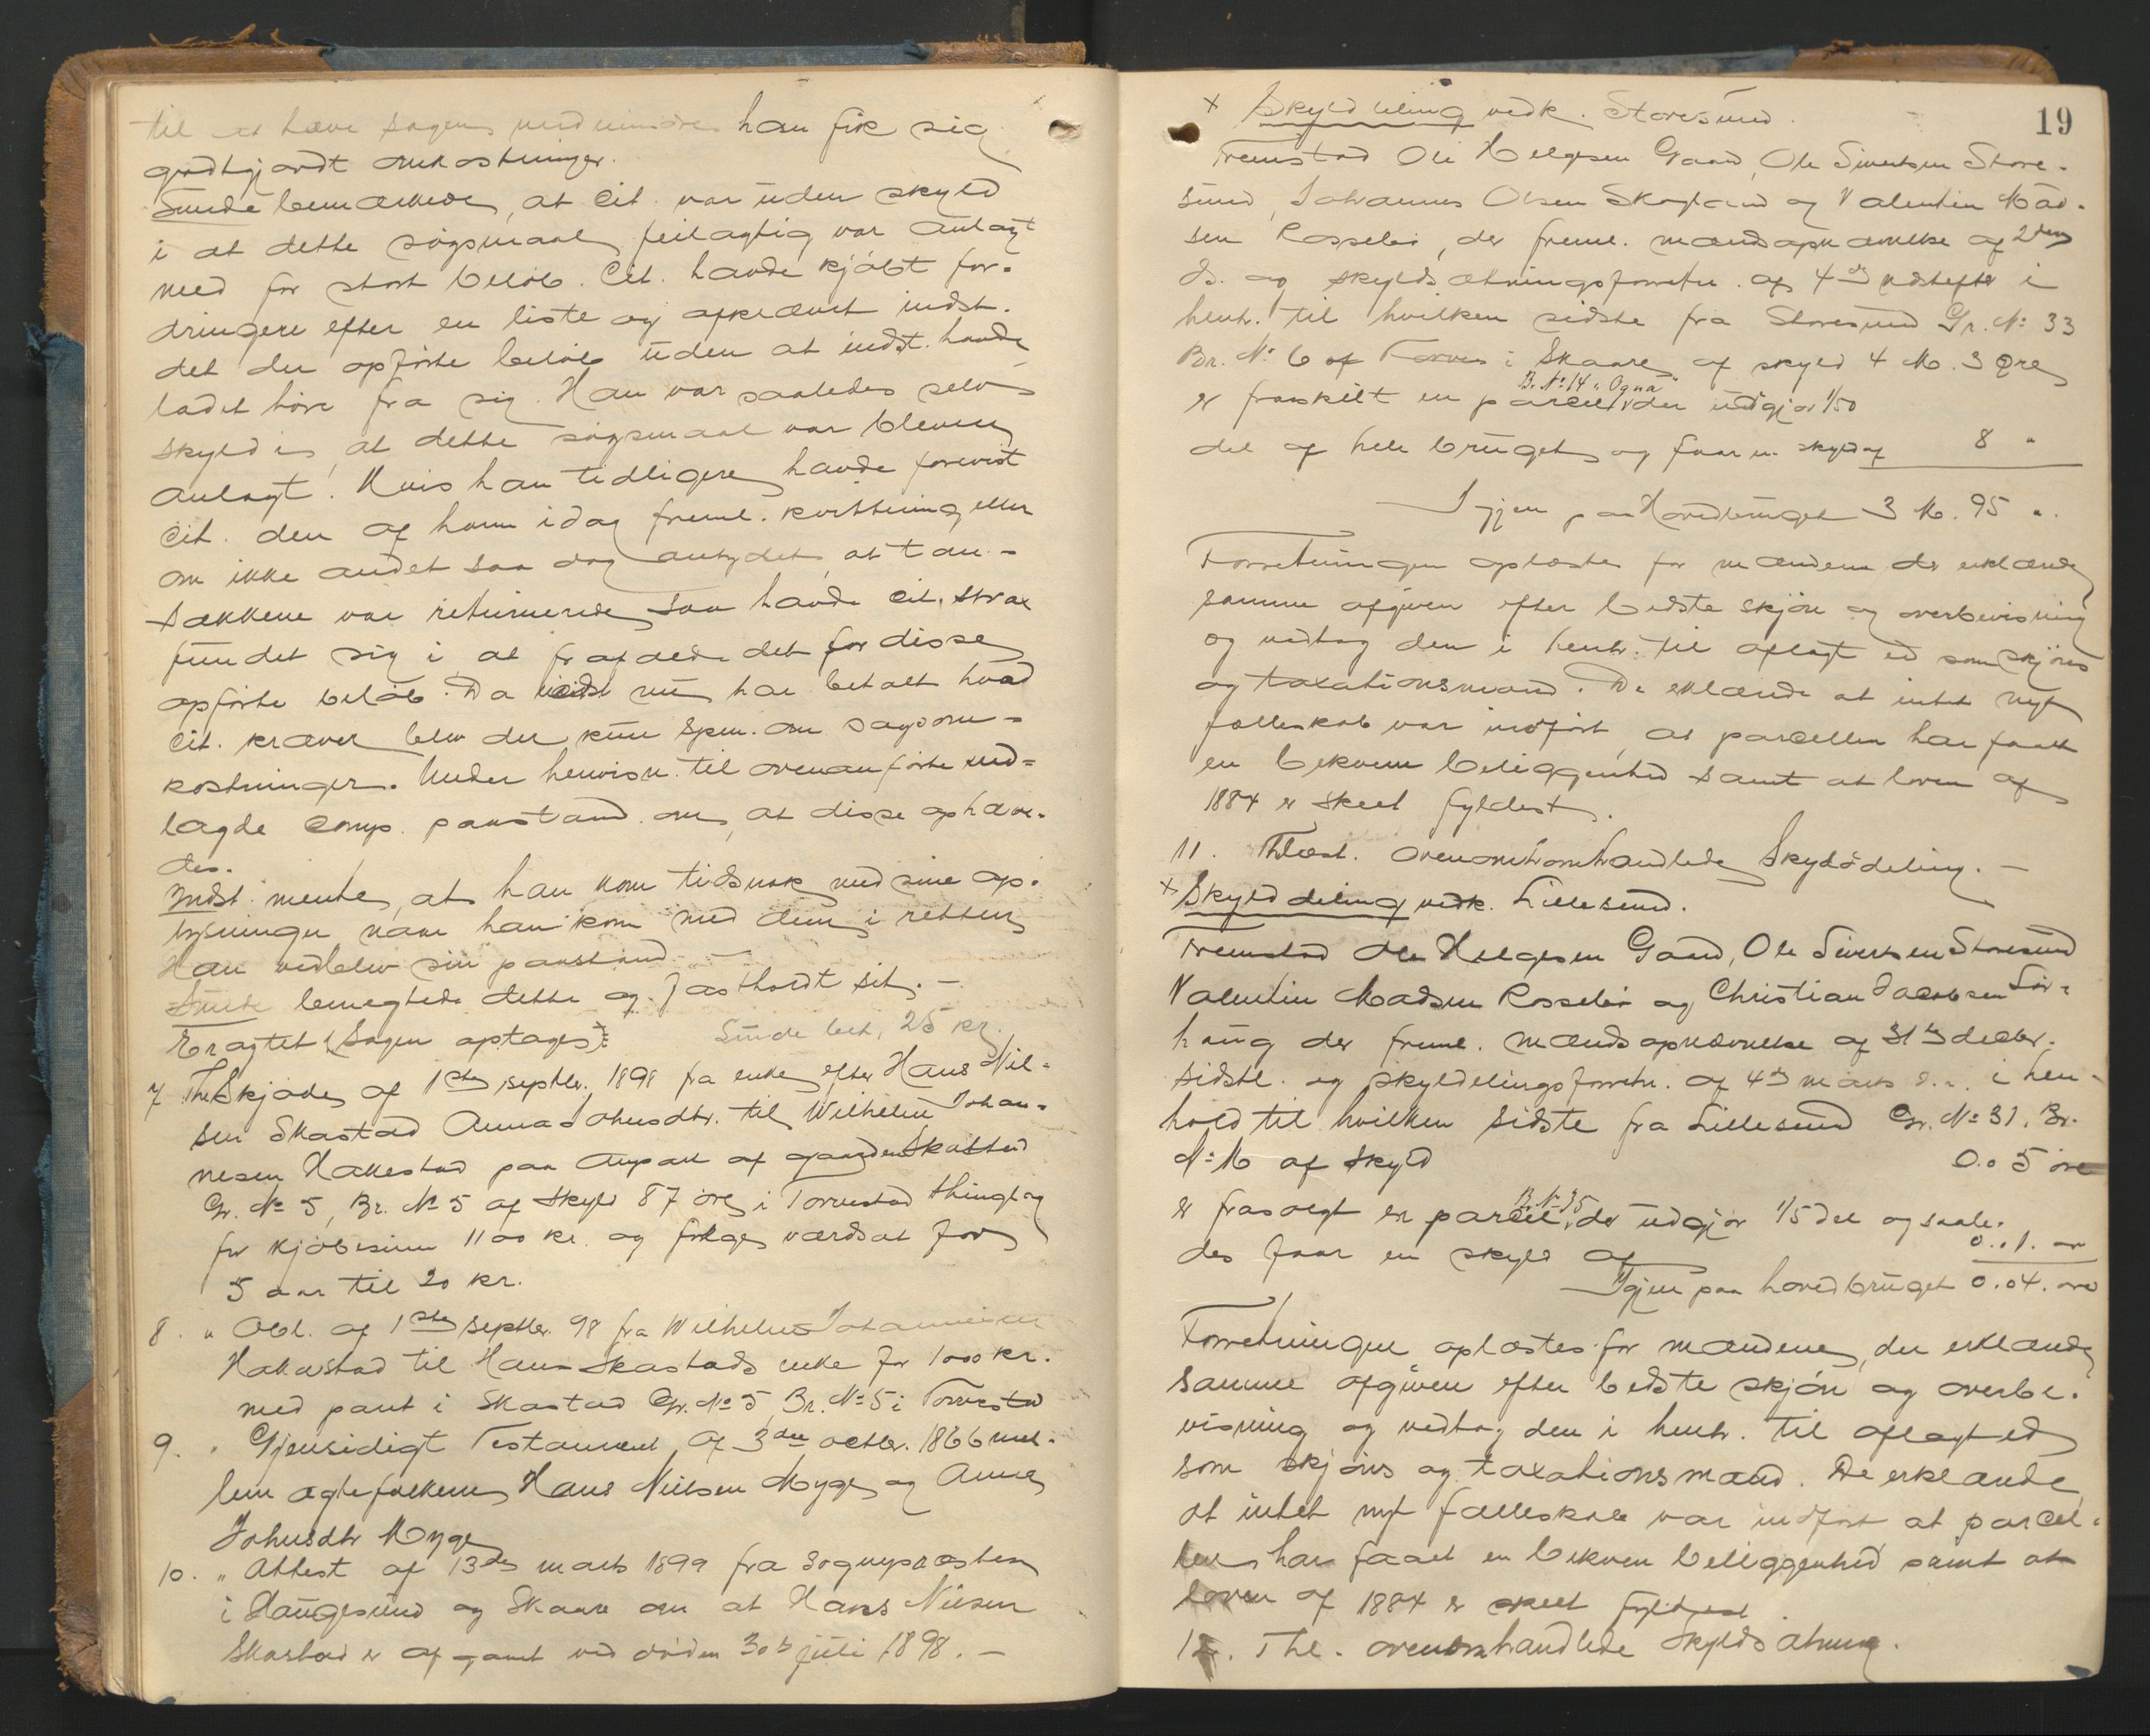 til at hæve sagen medmindre han fik sig
godtgjordt omkostninger.
Sunde bemærkede, at Cit. var uden skyld
i at dette søgsmaal feilagtig var anlagt
med for stort beløb. Cit. havde kjøbt for-
dringen efter en liste og afkrævet indst.
det der opførte beløb uden at indst. havde
ladet høre fra sig. Han var saaledes selv
skyld i, at dette søgsmaal var bleven
anlagt. Hvis han tidligere havde forevist
Cit. den af ham idag freml. kvittering eller
om ikke andet saa dog antydet, at tan-
sækkene var returnerede saa havde Cit. strax
fundet sig i at frafalde det for disse
opførte beløb. Da indst. nu har betalt hvad
Cit. kræver blev der kun spm. om sagsom-
kostninger. Under henvisn. til ovenanførte ned-
lagde comp. paastand om, at disse ophæve-
des.
Indst. mente, at han kom tidsnok med sine op-
lysninger naar han kom med dem i retten
Han vedblev sin paastand. —
Sunde benegtede dette og fastholdt sit. —
Eragtet: Sagen optages: Sunde bet. 25 kr.
7 Thl. Skjøde af 1ste septbr. 1898 fra enke efter Hans Nil-
sen Skastad Anna Johnsdtr. til Wilhelm Johan-
nesen Hakestad paa anpart af gaarden Skastad
Gr. No 5, Br. No 5 af skyld 87 øre i Torvestad thinglag
for kjøbesum 1100 kr. og følges værdsat for
5 aar til 20 kr.
8. " Obl. af 1ste septbr. 98 fra Wilhelm Johannesen
Hakestad til Hans Skastads enke for 1000 kr.
med pant i Skastad Gr. No 5, Br. No 5 i Torvestad
9. " Gjensidigt Testament af 3die octbr. 1866 mel-
lem ægtefolkene Hans Nilsen Myge og Anna
Johnsdtr Myge
10. " Attest af 13de marts 1899 fra sognepræsten
i Haugesund og Skaare om at Hans Nilsen
Skastad er afgaaet ved døden 30te juli 1898. —
19
x Skylddeling vedk. Storesund.
Fremstod Ole Helgesen Gaard, Ole Sivertsen Store-
sund, Johannes Olsen Skogland og Valentin Mad-
sen Rossebø, der freml. mandsopnævnelse af 2den
ds. og skyldsætningsforretn. af 4de næstefter i
henh. til hvilken sidste fra Storesund Gr. No 33
Br. No 6 af i Skaare af skyld 4 M. 3 Øre
Br. No 14 "Ogna"
er fraskilt en parcel, der udgjør 1/50
del af hele bruget og faar en skyld af 8 "
Igjen paa Hovedbruget 3 M. 95 ".
Forretningen oplæstes for mændene der erklærede
samme afgiven efter bedste skjøn og overbevisning
og vedtog den i henh. til aflagt ed som skjøns
og taxationsmænd. De erklærede at intet nyt
fælleskab var indført, at parcellen har faaet
en bekvem beliggenhed samt at loven af
1884 er skeet fyldest.
11. Thlæst. ovenomhandlede Skylddeling. —
x Skylddeling vedk. Lillesund.
Fremstod Ole Helgesen Gaard, Ole Sivertsen Storesund
Valentin Madsen Rossebø og Christian Jacobsen Sør-
haug der freml. mandsopnævnelse af 31te decbr.
sidstl. og skylddelingsforretn. af 4de marts d.a. i hen-
hold til hvilken sidste fra Lillesund Gr. No 31. Br.
No 16 af skyld 0.05 øre
Br. No 35
er frasolgt en parcel, der udgjør 1/5 del og saale-
des faar en skyld af 0..1. ør
Igjen paa hovedbruget 0.04. øre
Forretningen oplæstes for mændene, der erklærede
samme afgiven efter bedste skjøn og overbe-
visning og vedtog den i henh. til aflagt ed
som skjøns og taxationsmænd. De erklærede
at intet nyt fælleskab var indført at parcel-
len har faaet en bekvem beliggenhed samt at
loven af 1884 er skeet fyldest.
12. Thl. ovenomhandlede Skyldsætning.